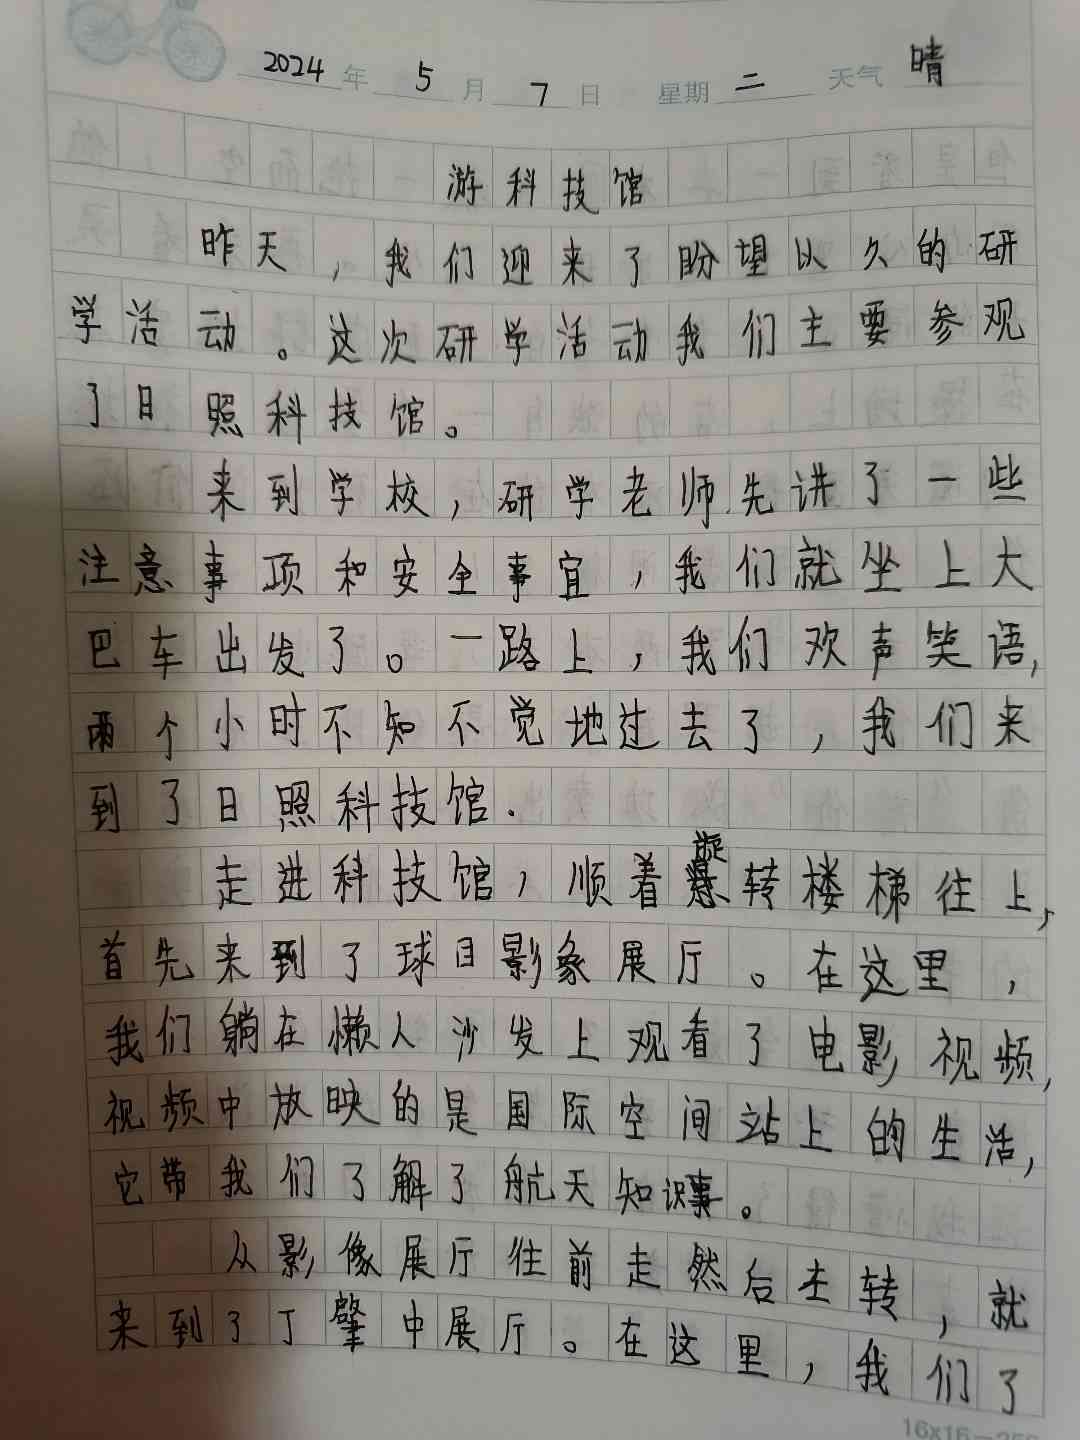 2024年5月7日 星期二 天气晴
游科技馆
昨天，我们迎来了盼望以久的研
学活动。这次研学活动我们主要参观
了日照科技馆。
来到学校，研学老师先讲了一些
注意事项和安全事宜，我们就坐上大
巴车出发了。一路上，我们欢声笑语，
两个小时不知不觉地过去了，我们来
到了日照科技馆.
走进科技馆，顺着旋转楼梯往上，
首先来到了球目影象展厅。在这里，
我们躺在懒人沙发上观看了电影视频，
视频中放映的是国际空间站上的生活，
它带我们了解了航天知识事。
从影像展厅往前走然后左转，就
来到了丁肇中展厅。在这里，我们了